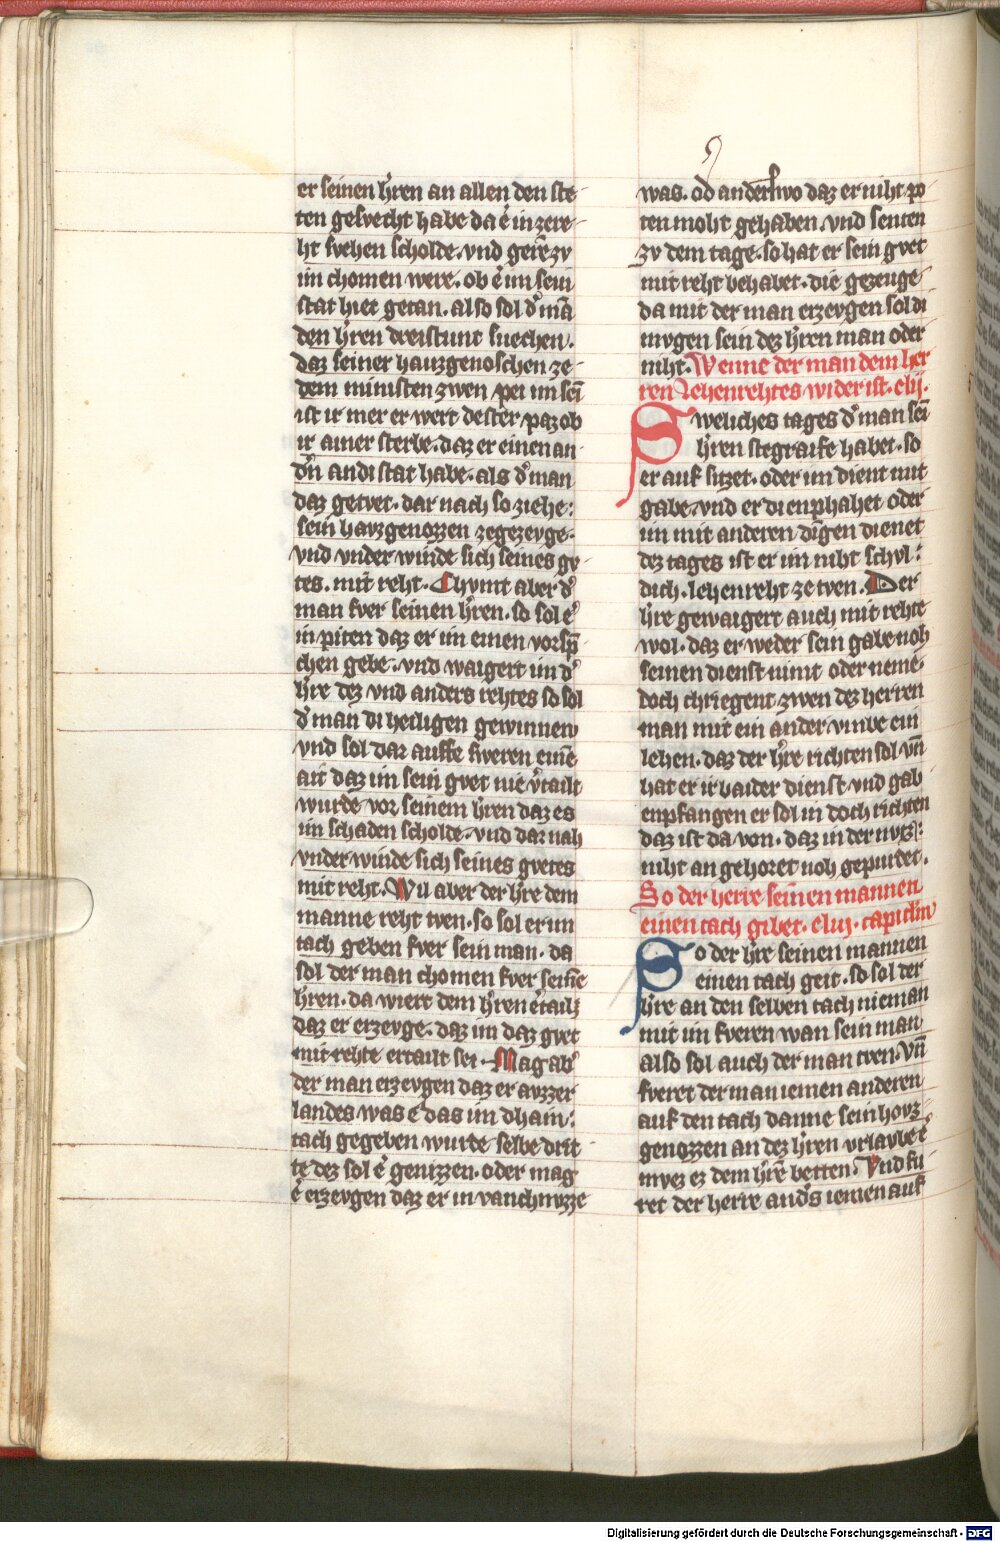 er seinen hˀren an allen den ste-
ten gesvecht habe da eˀ in ze re-
ht svehen scholde. vnd gerˀe zv
im chomen were. ob eˀ im sein
stat hiet getan. also sol dˀ mā
den hˀren dreistunt suechen.
daz seiner hauzgenoschen ze-
dem ministen zwen pei im sei
ist ir mer er wert dester paz ob
ir ainer sterbe. daz er einen an-
dˀn an di stat habe. als dˀ man
daz getvet. dar nach so ziehe:
sein havzgenozzen ze gezevge-
vnd vnder winde sich seines gv-
tes. mit reht. Chvmt aber dˀ
man fver seinen hˀren. so sol eˀ
in piten daz er im einen vorsp̄-
chen gebe. vnd waigert im dˀ
hˀre dez vnd anders rehtes so sol
dˀ man di heiligen gewinnen
vnd sol dar auffe sveren einē
ait daz im sein gvet nie vˀtailt
wurde vor seinem hˀren daz es
im schaden scholde. vnd dar nah
vnder winde sich seines gvetes
mit reht. Wil aber der hˀre dem
manne reht tven. so sol er im
tach geben fver sein man. da
sol der man chomen fver seinē
hˀren. da wiert dem hˀren eˀtailt
daz er erzevge. daz im daz gvet
mit rehte ertailt sei. Mag abˀ
der man erzevgen daz er avzzer
landes was e das im dhain:
tach gegeben wurde selbe drit-
te dez sol eˀ genizzen. oder mag
eˀ erzevgen daz er in vanchnvzze
was. od andersˀwo daz er niht po
ten moht gehaben. vnd senten
zv dem tage. so hat er sein gvet
mit reht behabet. die gezeuge-
da mit der man erzevgen sol di
mvgen sein dez hˀren man oder
niht. Wenne der man dem her
ren Lehenrehtes wider ist. clij.
Swelches tages dˀ man sei
hˀren stegraife habet. so
er auf sitzet. oder im dient mit
gabe. vnd er di enphahet oder
im mit anderen dīgen dienet
dez tages ist er im niht schvl:
dich. lehenreht ze tven. Der
hˀre gewaigert auch mit rehte
wol. daz er weder sein gabe noh
seinen dienst nimt oder neme-
doch chriegent zwen dez herren
man mit ein ander. vmbe ein
lehen. daz der hˀre richten sol. vn̄
hat er ir baider dienst vnd gab
enpfangen er sol in doch richten
daz ist da von. daz in der nvtz:
niht an gehoret noh gepurdet.
So der herre seinen mannen
einen tach gibet. cliij. capitlm
So der hˀre seinen mannen
einen tach geit. so sol der
hˀre an den selben tach nieman
mit im fveren wan sein man
also sol auch der man tven. vn̄
fveret der man iemen anderen
auf den tach danne sein hovz-
genozzen an dez hˀren vrlavbe eˀ
mvez ez dem hˀrē betten. Vnd fu-
ret der herre andˀs iemen auf
Digitalisierung gefördert durch die Deutsche Forschungsgemeinschaft - DFG